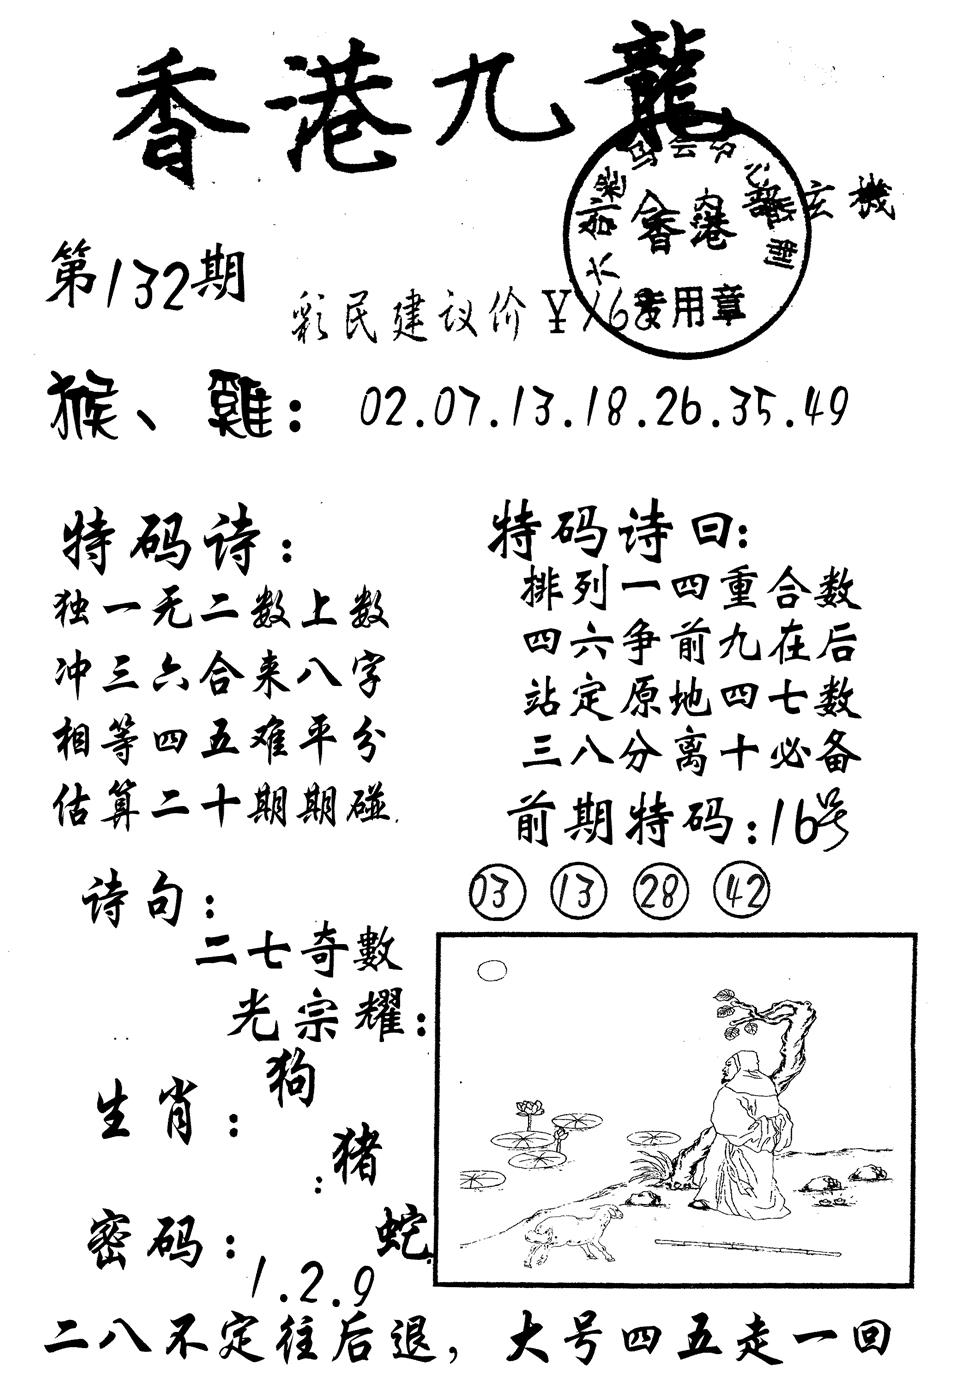 香港九龍
玄機
香港
专用章
第132期
彩民建议价￥168
猴、雞：02.07.13.18.26.35.49
特码诗：
独一无二数上数
冲三六合来八字
相等四五难平分
估算二十期期碰
特码诗曰：
排列一四重合数
四六争前九在后
站定原地四七数
三八分离十必备
前期特码：16号
03 13 28 42
诗句：
二七奇數
光宗耀：
生肖：狗
：猪
蛇
密码：1.2.9
二八不定往后退，大号四五走一回